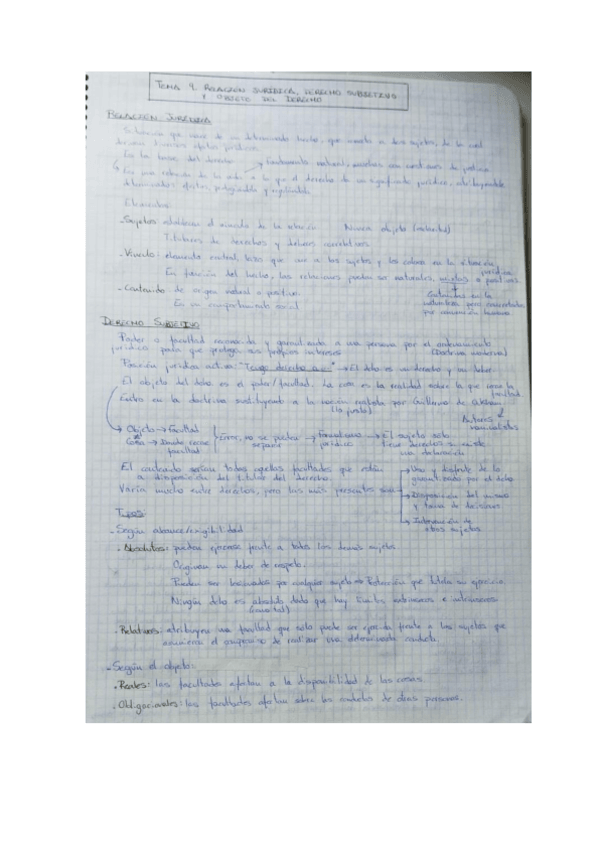 TEMA 9. RELACIÓN JURÍDICA, DERECHO SUBJETIVO
Y OBJETO DEL DERECHO
RELACIÓN JURÍDICA
Situación que nace de un determinado hecho, que a dos sujetos, de la cual
derivan diversos efectos jurídicos.
Es la base del derecho → Fundamento natural, muchas son cuestiones de justicia
↳ Es una relación de la vida a la que el derecho da un significado jurídico, atribuyéndole
determinados efectos, protegiéndola y regulándola.
Elementos:
- Sujetos: establecen el vínculo de la relación Nunca objeto (esclavitud)
Titulares de derechos y deberes correlativos.
- Vínculo: elemento central, lazo que une a los sujetos y los coloca en la situación jurídica
En función del hecho, las relaciones pueden ser naturales, mixtas o positivas
- Contenido de origen natural o positivo.
Es un comportamiento social
en la naturaleza pero
por convención humana
DERECHO SUBJETIVO
Poder o facultad reconocida y garantizada a una persona por el ordenamiento
jurídico para que proteja sus propios intereses (Doctrina moderna)
Posición jurídica activa: "Tengo derecho a..." → El dcho es un derecho y un deber.
El objeto del dcho es el poder/facultad. La cosa es la realidad sobre la que recae la facultad
Entró en la doctrina sustituyendo a la noción realista por Guillermo de Ockham
(lo justo)
Autores nominalistas
Objeto → Facultad
Cosa → Donde recae facultad
Error, no se pueden separar → Formalismo jurídico → El sujeto solo
tiene derechos si existe
una declaración
El contenido serían todas aquellas facultades que están
a disposición del titular del derecho.
Varía mucho entre derechos, pero las más presentes son:
→ Uso y disfrute de lo
garantizado por el dcho
→ Disposición del mismo
y toma de decisiones
→ Intervención de
otros sujetos
Tipos:
- Según alcance/exigibilidad
• Absolutos: pueden ejercerse frente a todos los demás sujetos.
Originan un deber de respeto.
Pueden ser lesionados por cualquier sujeto → Protección que tutela su ejercicio.
Ningún dcho es absoluto dado que hay límites extrínsecos e intrínsecos
• Relativos: atribuyen una facultad que solo puede ser ejercida frente a los sujetos que
asumieron el compromiso de realizar una determinada conducta.
- Según el objeto:
• Reales: las facultades afectan a la disponibilidad de las cosas.
• Obligacionales: las facultades afectan sobre las conductas de otras personas.